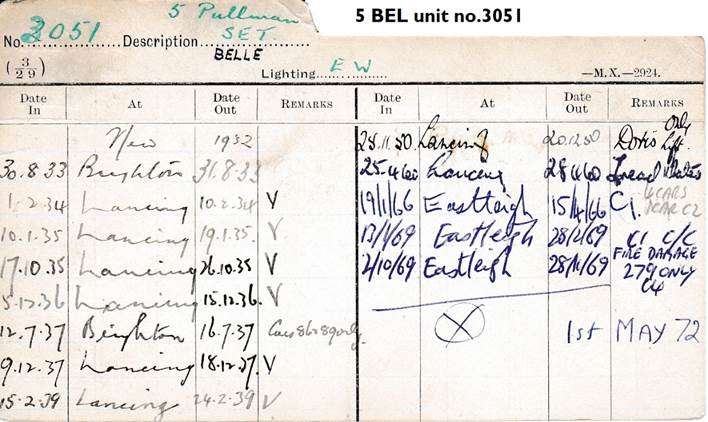 5 BEL unit no.3051
5 Pullman
No. 3051 Description SET
BELLE
(3/29)
Lighting EW —M.X.—2924.
Date In At Date Out REMARKS Date In At Date Out REMARKS
New 1932 25.11.50 Lancing 20.12.50 Doris only Lift.
30.8.33 Brighton 31.8.33 25.4.60 Lancing 28.4.60 Tread Plates
1.2.34 Lancing 10.2.34 V 19/1/66 Eastleigh 15/4/66 C1. 4 CARS 1 CAR C2
10.1.35 Lancing 19.1.35. V 13/1/69 Eastleigh 28/2/69 C1 C/C
17.10.35 Lancing 26.10.35 V 2/10/69 Eastleigh 28/11/69 FIRE DAMAGE 279 ONLY C4
5.12.36 Lancing 15.12.36. V
12.7.37 Brighton 16.7.37 Cars 86 & 89 only. X 1st MAY 72
9.12.37 Lancing 18.12.37. V
15.2.39 Lancing 24.2.39 V